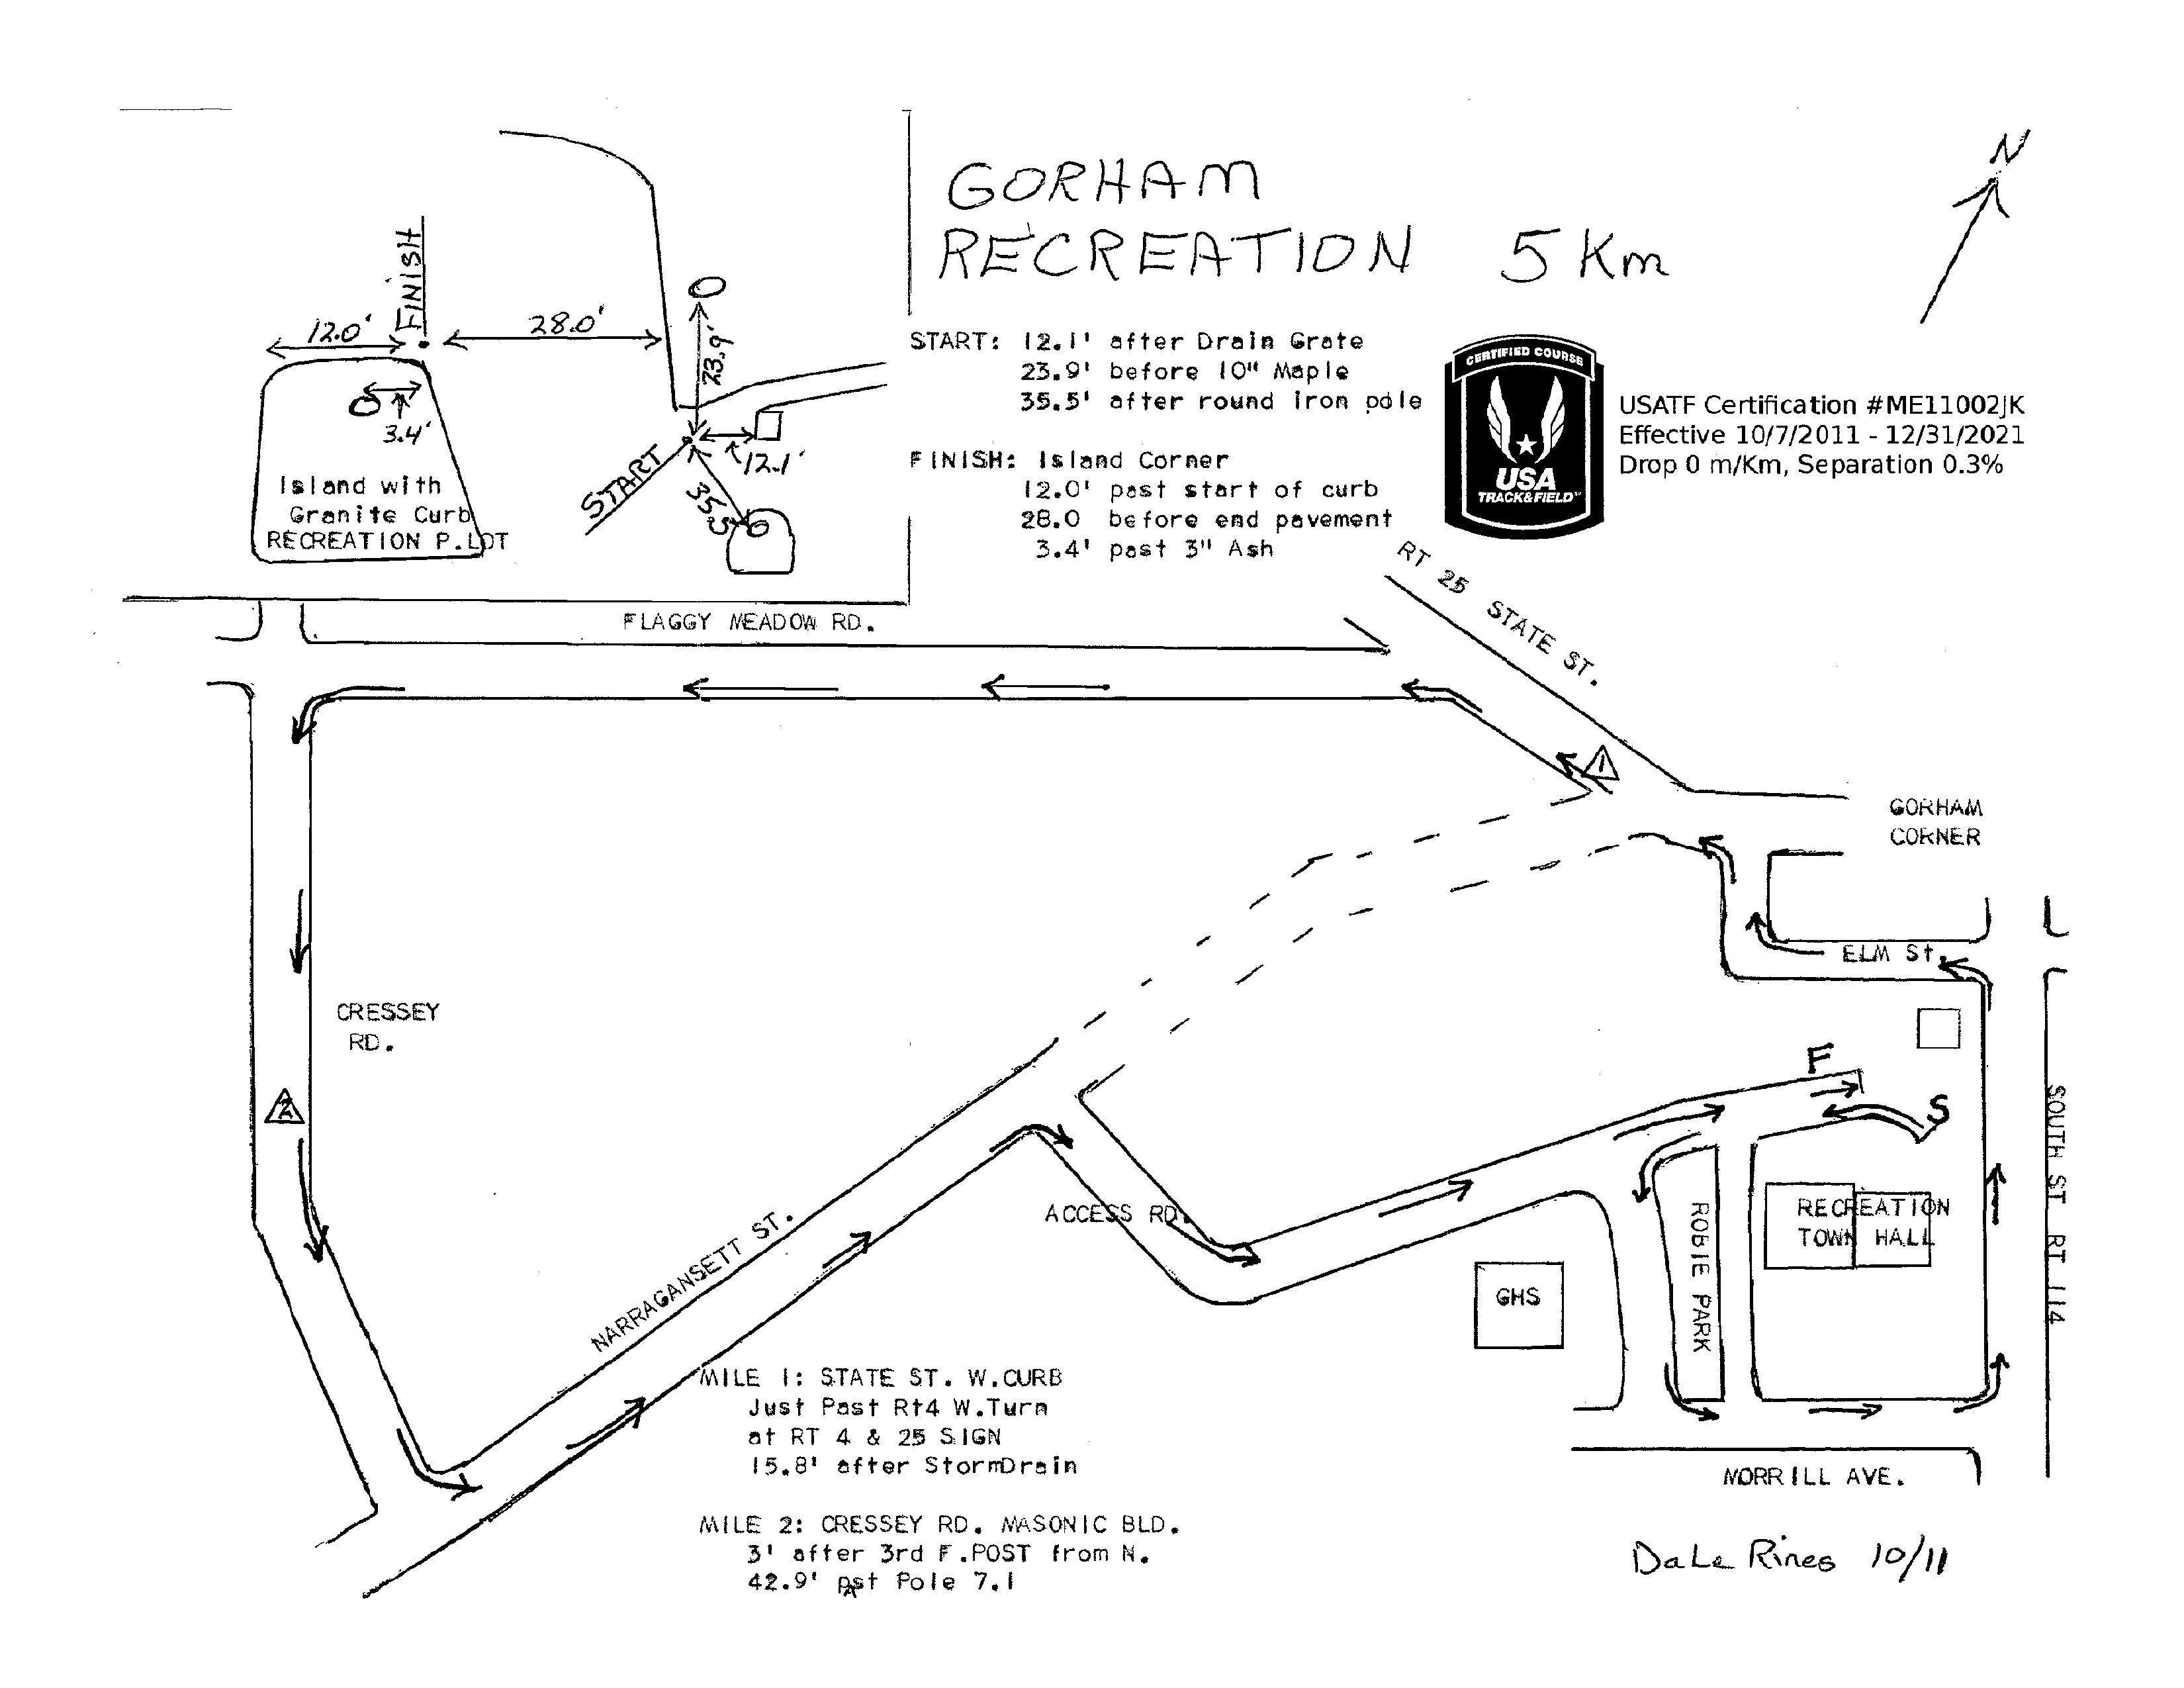 GORHAM
RECREATION 5 Km
N
FINISH
12.0'
28.0'
23.9'
3.4'
12.1'
START
35.5
Island with
Granite Curb
RECREATION P.LOT
START: 12.1' after Drain Grate
23.9' before 10" Maple
35.5' after round iron pole
FINISH: Island Corner
12.0' past start of curb
28.0 before end pavement
3.4' past 3" Ash
CERTIFIED COURSE
USA
TRACK&FIELD
USATF Certification #ME11002JK
Effective 10/7/2011 - 12/31/2021
Drop 0 m/Km, Separation 0.3%
RT 25 STATE ST.
FLAGGY MEADOW RD.
1
GORHAM
CORNER
ELM St.
CRESSEY
RD.
2
F
S
SOUTH ST RT 114
ACCESS RD.
NARRAGANSETT ST.
ROBIE PARK
RECREATION
TOWN HALL
GHS
MORRILL AVE.
MILE 1: STATE ST. W.CURB
Just Past Rt4 W.Turn
at RT 4 & 25 SIGN
15.8' after StormDrain
MILE 2: CRESSEY RD. MASONIC BLD.
3' after 3rd F.POST from N.
42.9' past Pole 7.1
Dale Rines 10/11